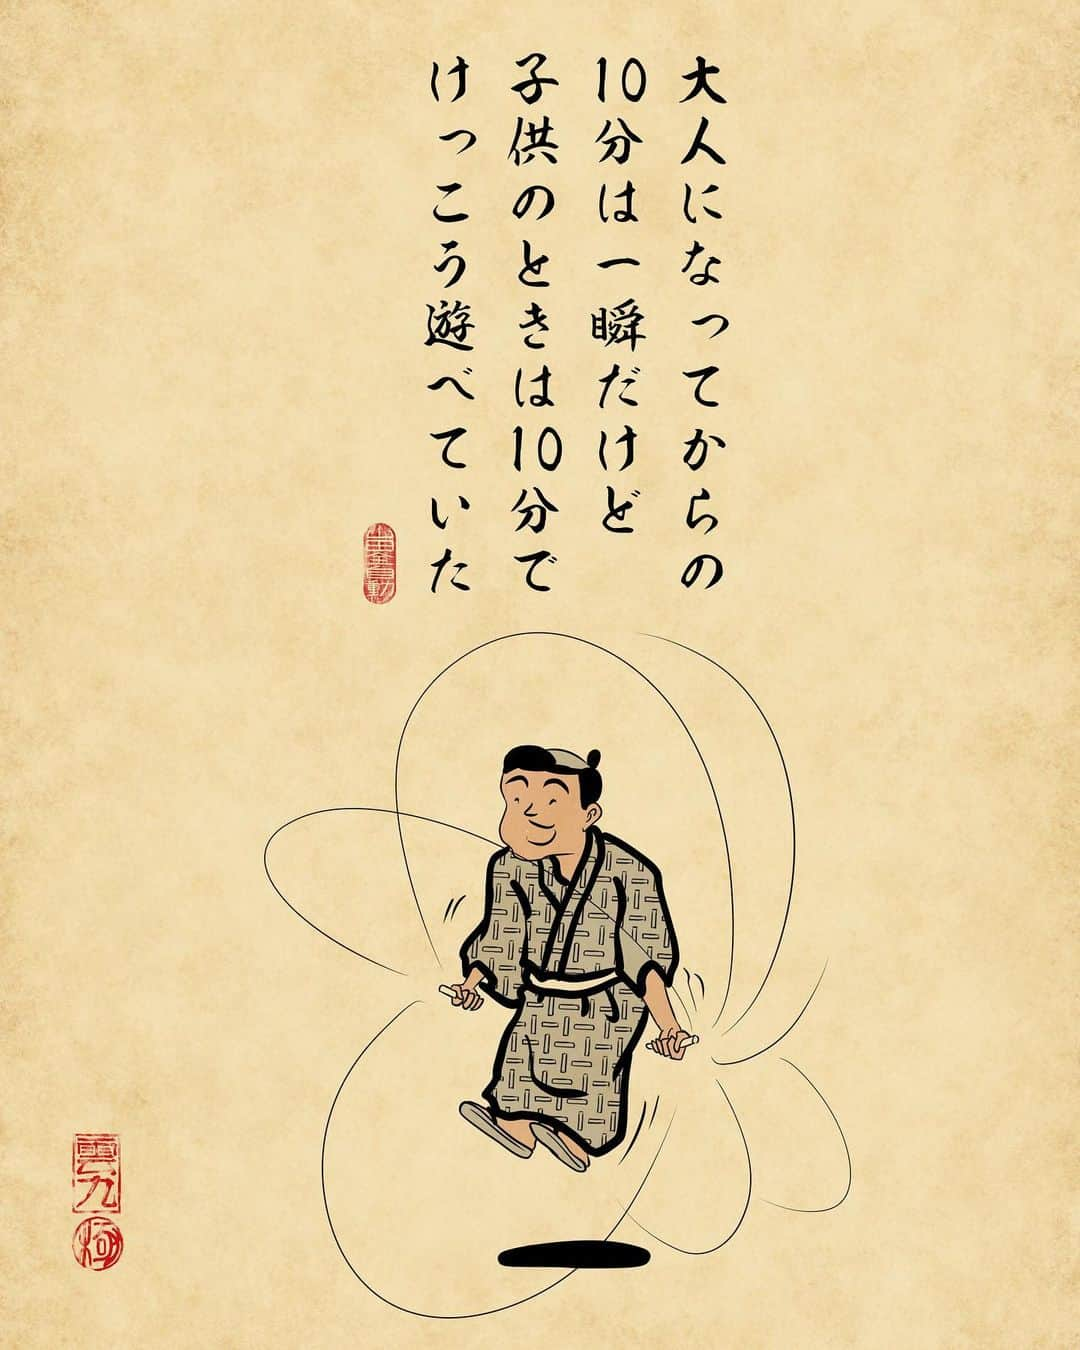 大人になってからの
10分は一瞬だけど
子供のときは10分で
けっこう遊べていた
雲九
極